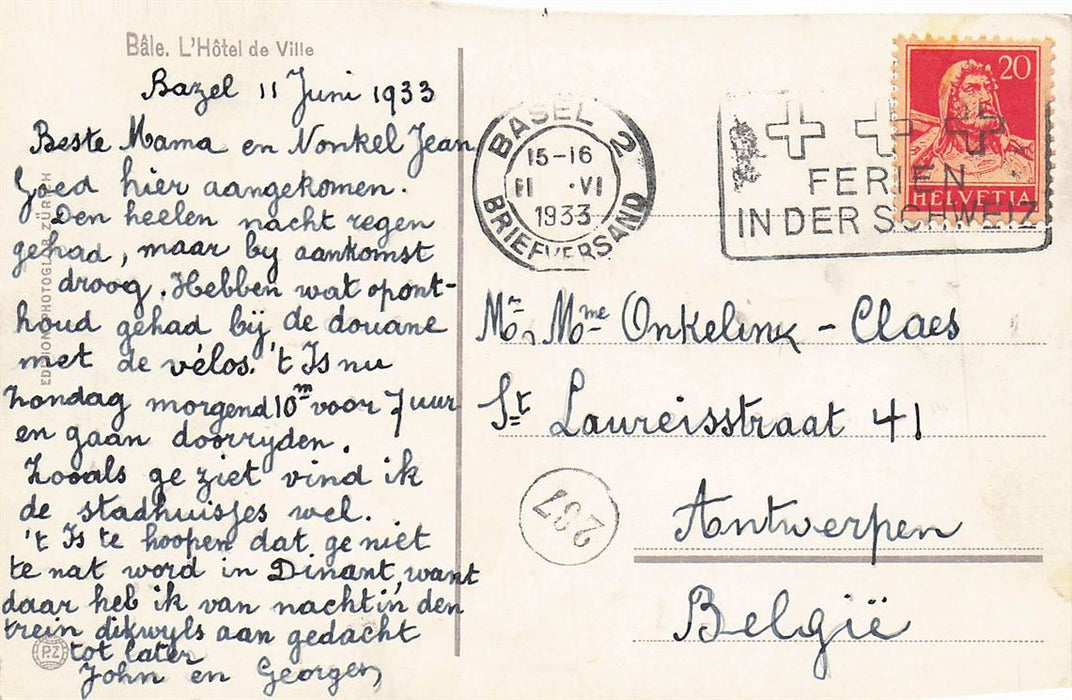 Bâle. L'Hôtel de Ville
Bazel 11 Juni 1933
Beste Mama en Nonkel Jean
Goed hier aangekomen.
Den heelen nacht regen
gehad, maar by aankomst
droog. Hebben wat opont-
houd gehad bij de douane
met de vélos. 't Is nu
Zondag morgend 10m voor 7 uur
en gaan doorryden.
Zooals ge ziet vind ik
de stadhuisjes wel.
't Is te hoopen dat ge niet
te nat word in Dinant, want
daar heb ik van nacht in den
trein dikwyls aan gedacht
tot later
John en Georges
EDITION PHOTOGLOB ZÜRICH
P.Z
BASEL 2
15-16
11 · VI
1933
BRIEFVERSAND
FERIEN
IN DER SCHWEIZ
20
HELVETIA
Mr, Mme Onkelinx - Claes
St Laureisstraat 41
237
Antwerpen
België